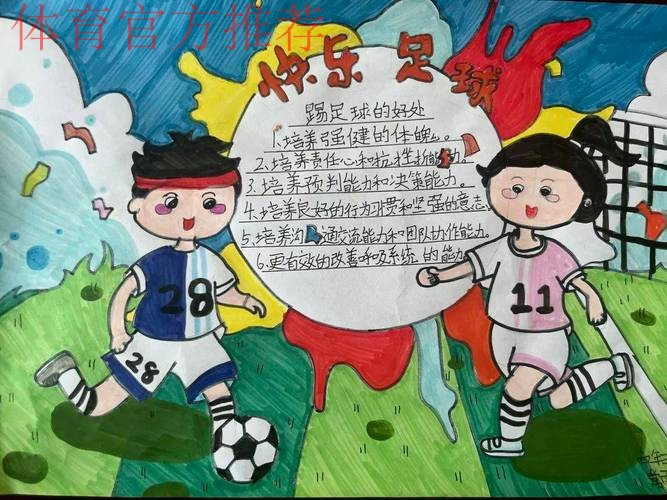 体育官方推荐
快乐 足球
踢足球的好处
1.培养强健的体魄。
2.培养责任心和抗挫折能力。
3.培养预判能力和决策能力。
4.培养良好的行为习惯和坚强的意志。
5.培养沟通交流能力和团队协作能力。
6.更有效的改善呼吸系统的能力
28
11
28